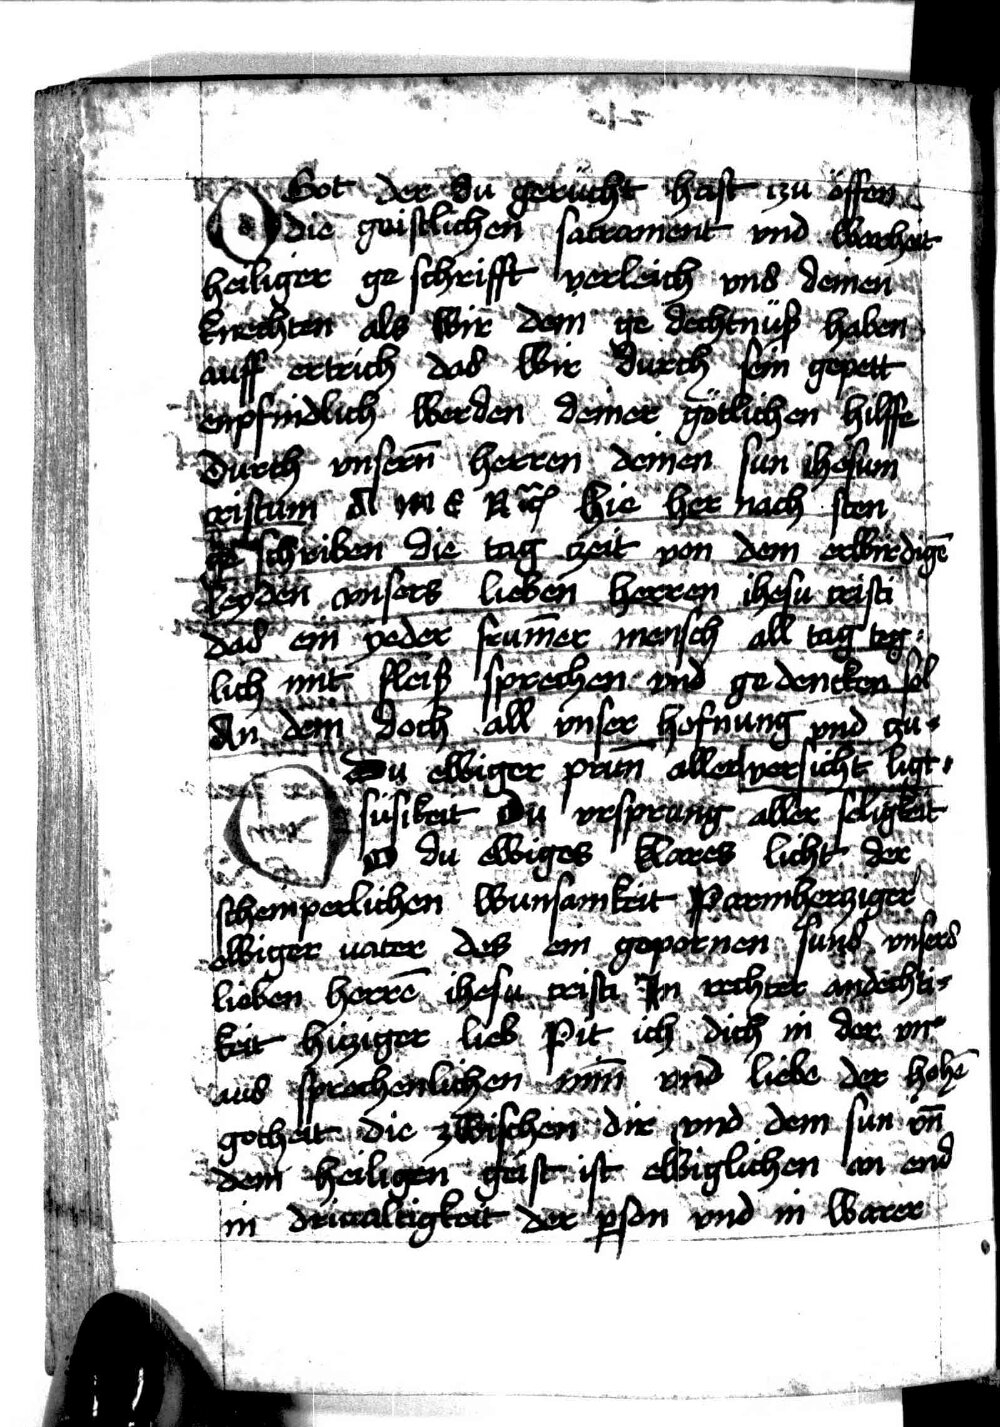 O Got der du geruͤcht hast zu oͤffen
die geistlichen sacrament vnd warheit
heiliger ge schrifft verleich vns deinen
knechten als wir dein ge dechtnuͤß haben
auff ertrich das wir durch sein gepett
enpfindlich werden deiner goͤtlichen hilffe
durch vnsern̄ herren deinen sun ihesum
cristum A M E N Hie her nach sten
ge schriben die tag zeit von dem erwirdigē
leyden vnsers lieben herren ihesu cristi
das ein yeder frum̄er mensch all tag teg
lich mit fleiß sprechen vnd gedencken sol
An dem doch all vnser hofnung vnd zu
versicht ligt
O Du ewiger prun̄ aller
suͤsikeit Du vrsprung aller seligkeit
O du ewiges klares licht der
schemperlichen wunsamkeit Parmherziger
ewiger vater des ein gepornen suns vnsers
lieben herrē ihesu cristi In rechter andechti
keit hicziger lieb Pit ich dich in der vn
aus sprechenlichen min̄ vnd liebe der hohē
gotheit die zwischen dir vnd dem sun vn̄
dem heiligen geist ist ewiglichen on end
in driualtigkeit der pson vnd in warer